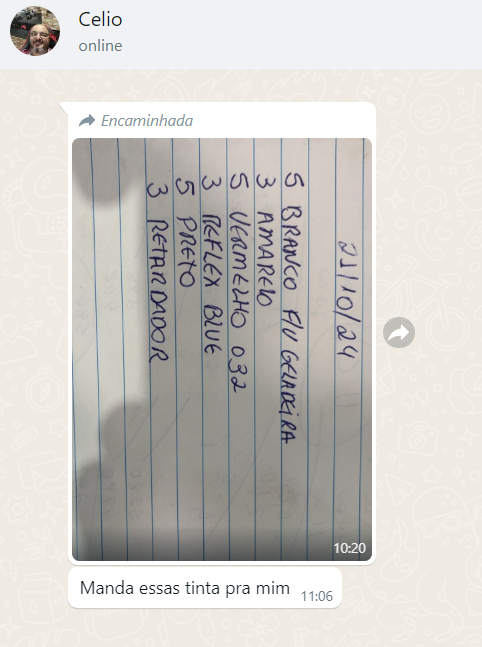 Celio
online
Encaminhada
21/10/24
5 BRANCO F/V GELADEIRA
3 AMARELO
5 VERMELHO 032
3 REFLEX BLUE
5 PRETO
3 RETARDADOR
10:20
Manda essas tinta pra mim
11:06